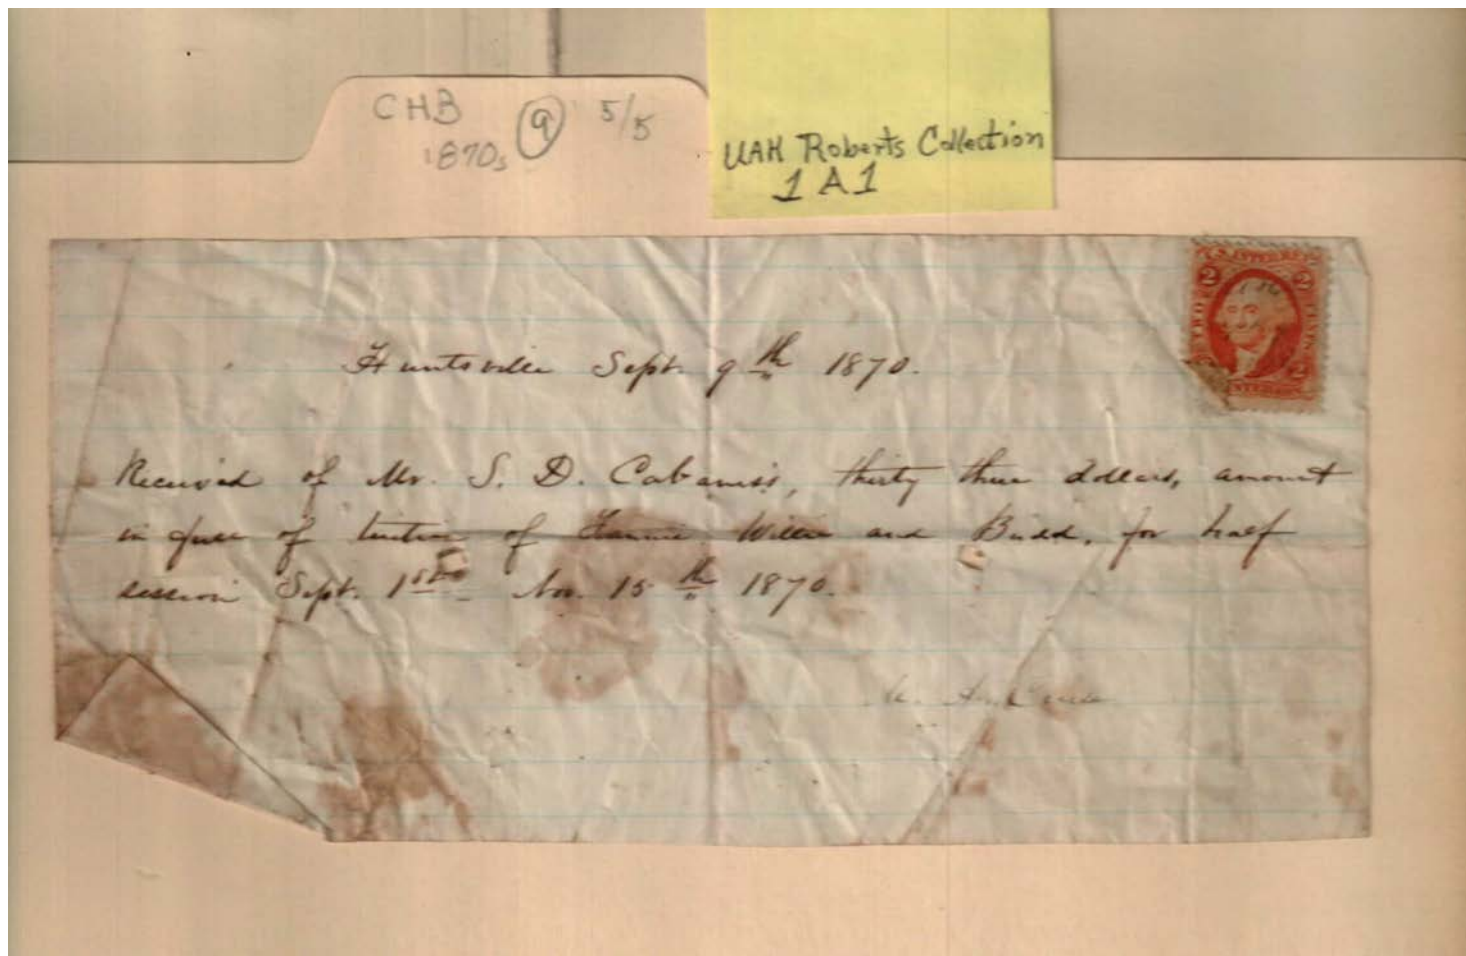 CHB 9 5/5
1870s
UAH Roberts Collection
1A1
U.S. INTER. REV.
2 2
TWO CENTS
2
Huntsville Sept. 9th 1870.
Received of Mr. S. D. Cabaniss, thirty three dollars, amount
in full of tuition of Fannie Willie and Budd, for half
session Sept. 1st Nov. 15th 1870.